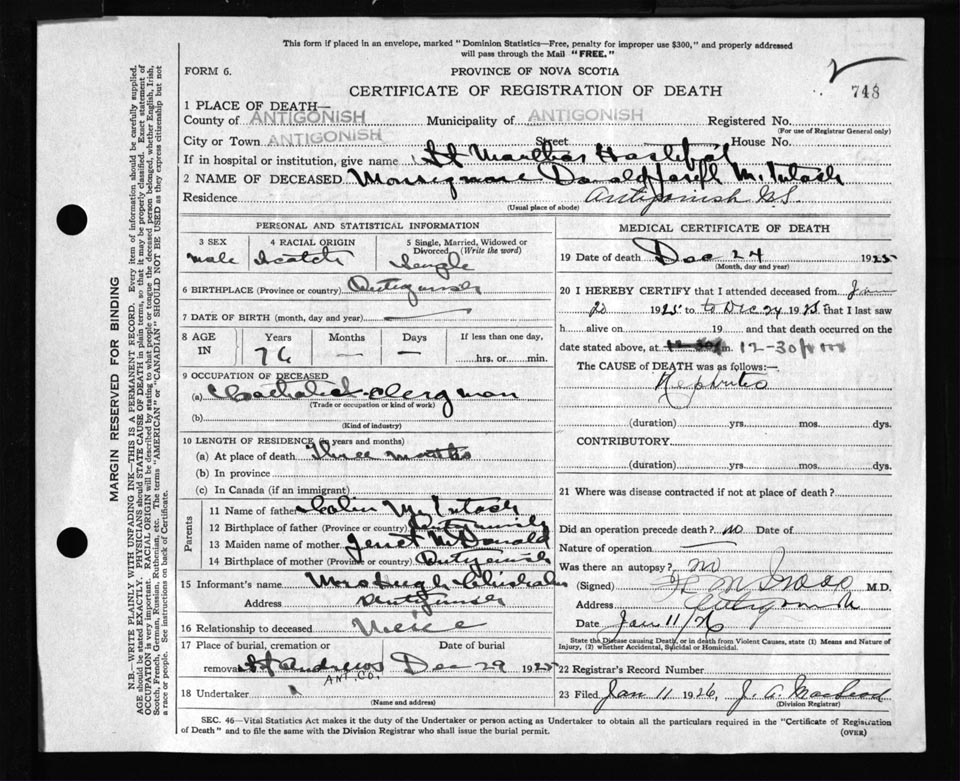 This form if placed in an envelope, marked "Dominion Statistics—Free, penalty for improper use $300," and properly addressed
will pass through the Mail "FREE."
FORM 6.
PROVINCE OF NOVA SCOTIA
CERTIFICATE OF REGISTRATION OF DEATH
743
1 PLACE OF DEATH—
County of ANTIGONISH Municipality of ANTIGONISH Registered No.
(For use of Registrar General only)
City or Town ANTIGONISH Street House No.
If in hospital or institution, give name St Marthas Hospital
2 NAME OF DECEASED Monsignore Donald Joseph McIntosh
Residence Antigonish N.S.
(Usual place of abode)
PERSONAL AND STATISTICAL INFORMATION
3 SEX 4 RACIAL ORIGIN 5 Single, Married, Widowed or Divorced (Write the word)
male Scotch Single
6 BIRTHPLACE (Province or country) Antigonish
7 DATE OF BIRTH (month, day and year) —
8 AGE IN Years Months Days If less than one day,
76 — — hrs. or min.
9 OCCUPATION OF DECEASED
(a) Catholic Clergman
(Trade or occupation or kind of work)
(b)
(Kind of industry)
10 LENGTH OF RESIDENCE (in years and months)
(a) At place of death Three months
(b) In province
(c) In Canada (if an immigrant)
Parents
11 Name of father Colin McIntosh
12 Birthplace of father (Province or country) Antigonish
13 Maiden name of mother Jenet McDonald
14 Birthplace of mother (Province or country) Antigonish
15 Informant's name Mrs Hugh Chisholm
Address Antigonish
16 Relationship to deceased Neice
17 Place of burial, cremation or Date of burial
removal St Andrews Dec 29 1925
ANT. CO.
18 Undertaker
(Name and address)
MEDICAL CERTIFICATE OF DEATH
19 Date of death Dec 24 1925
(Month, day and year)
20 I HEREBY CERTIFY that I attended deceased from Jan
20 1925 to Dec 24 1925 that I last saw
h alive on 19 and that death occurred on the
date stated above, at m. 12-30
The CAUSE OF DEATH was as follows:—
Nephritis
(duration) yrs. mos. dys.
CONTRIBUTORY
(duration) yrs. mos. dys.
21 Where was disease contracted if not at place of death?
Did an operation precede death? no Date of
Nature of operation —
Was there an autopsy? no
(Signed) M.D.
Address Antigonish
Date Jan 11/26
State the Disease causing Death, or in death from Violent Causes, state (1) Means and Nature of
Injury, (2) whether Accidental, Suicidal or Homicidal.
22 Registrar's Record Number
23 Filed Jan 11 1926, J. A. Macleod
(Division Registrar)
SEC. 46—Vital Statistics Act makes it the duty of the Undertaker or person acting as Undertaker to obtain all the particulars required in the "Certificate of Registration
of Death" and to file the same with the Division Registrar who shall issue the burial permit.
(OVER)
MARGIN RESERVED FOR BINDING
N.B.—WRITE PLAINLY WITH UNFADING INK—THIS IS A PERMANENT RECORD. Every item of information should be carefully supplied.
AGE should be stated EXACTLY. PHYSICIANS should STATE CAUSE OF DEATH in plain terms, so that it may be properly classified. Exact statement of
OCCUPATION is very important. RACIAL ORIGIN will be described by stating to what people or tongue the deceased person belonged, whether English, Irish,
Scotch, French, German, Russian, Ruthenian, etc. The terms "AMERICAN" or "CANADIAN" SHOULD NOT BE USED as they express citizenship but not
a race or people. See instructions on back of Certificate.